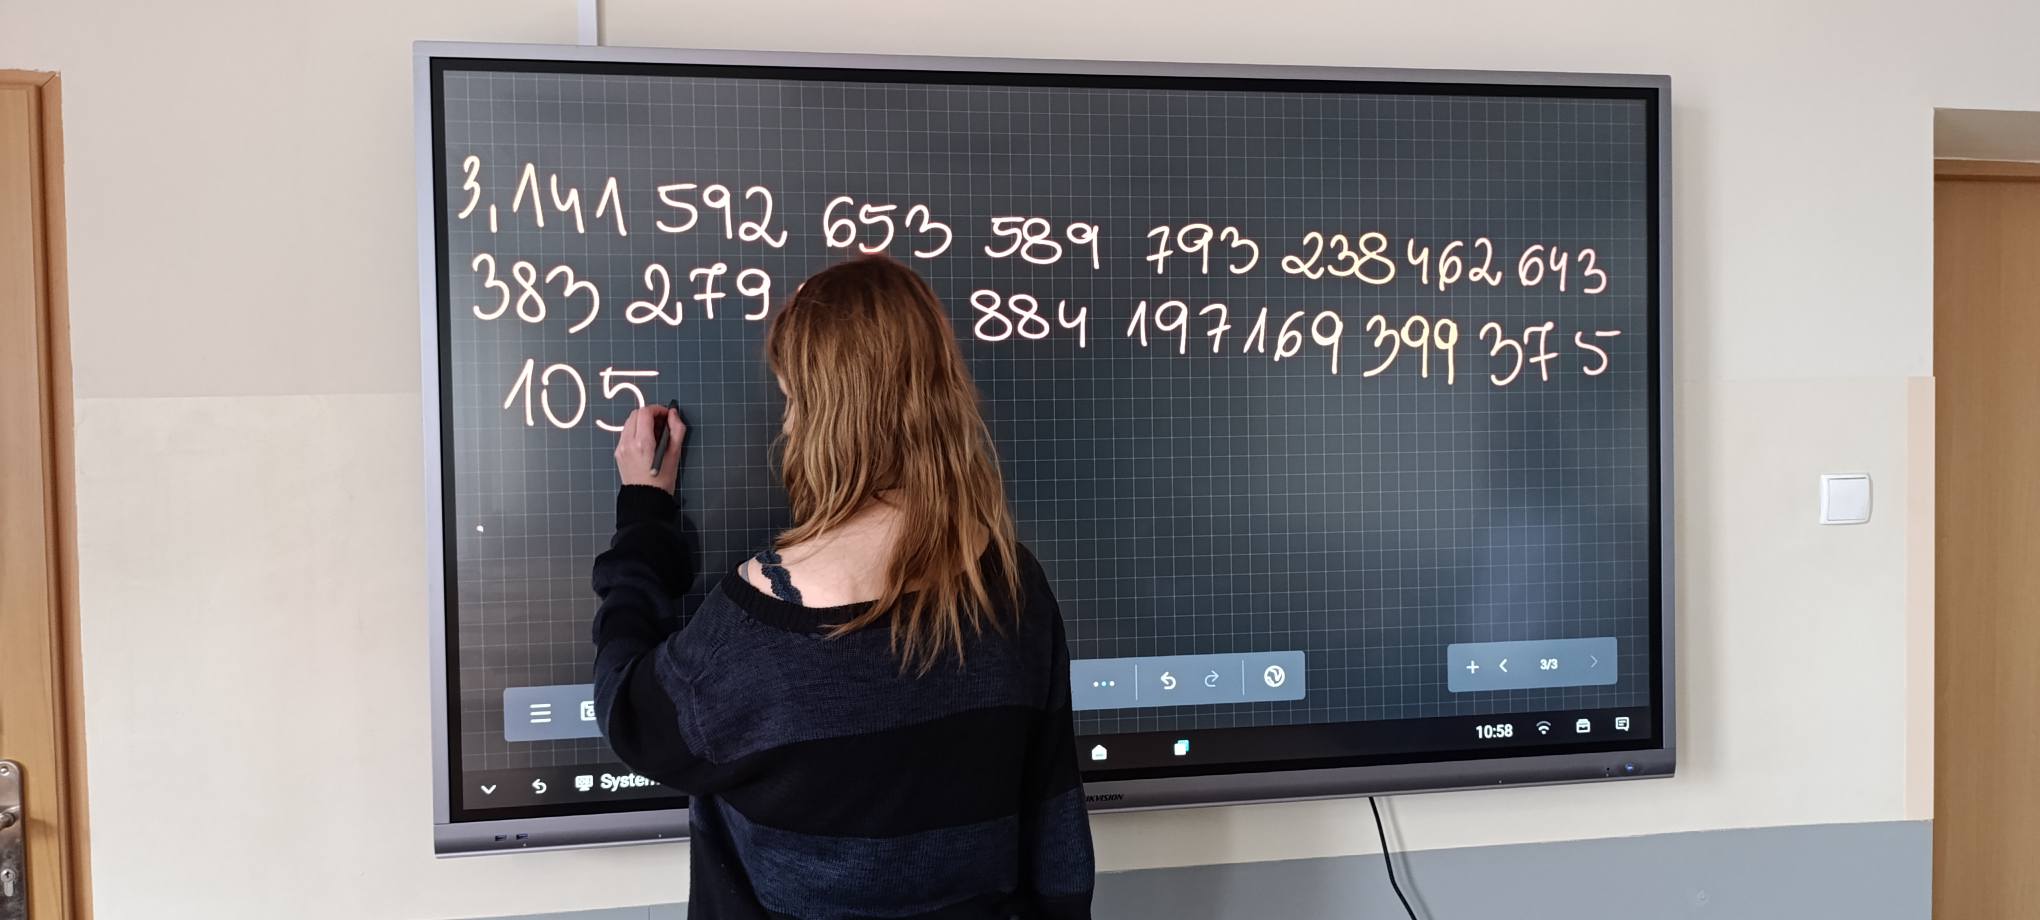 3,141 592 653 589 793 238 462 643
383 279 884 197 169 399 375
105
3/3
10:58
System